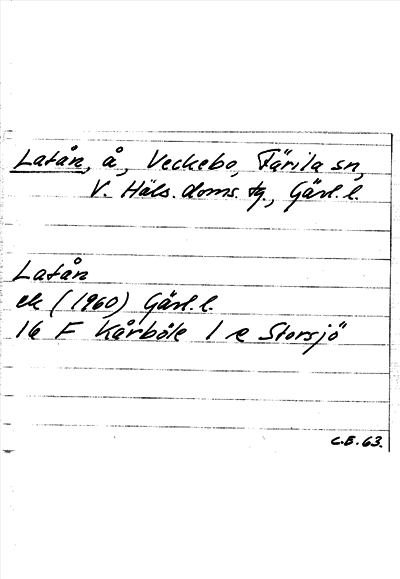 Latån, å, Veckebo, Färila sn,
V. Häls. doms. tg., Gävl. l.
Latån
ek (1960) Gävl. l.
16 F Kårböle 1 e Storsjö
C.E. 63.